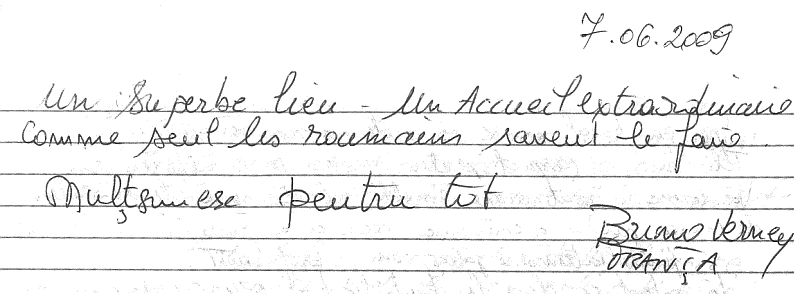 7.06.2009
Un Superbe lieu - Un Accueil extraordinaire
Comme seul les roumains savent le faire.
Mulțumesc pentru tot
Bruno Verney
FRANȚA